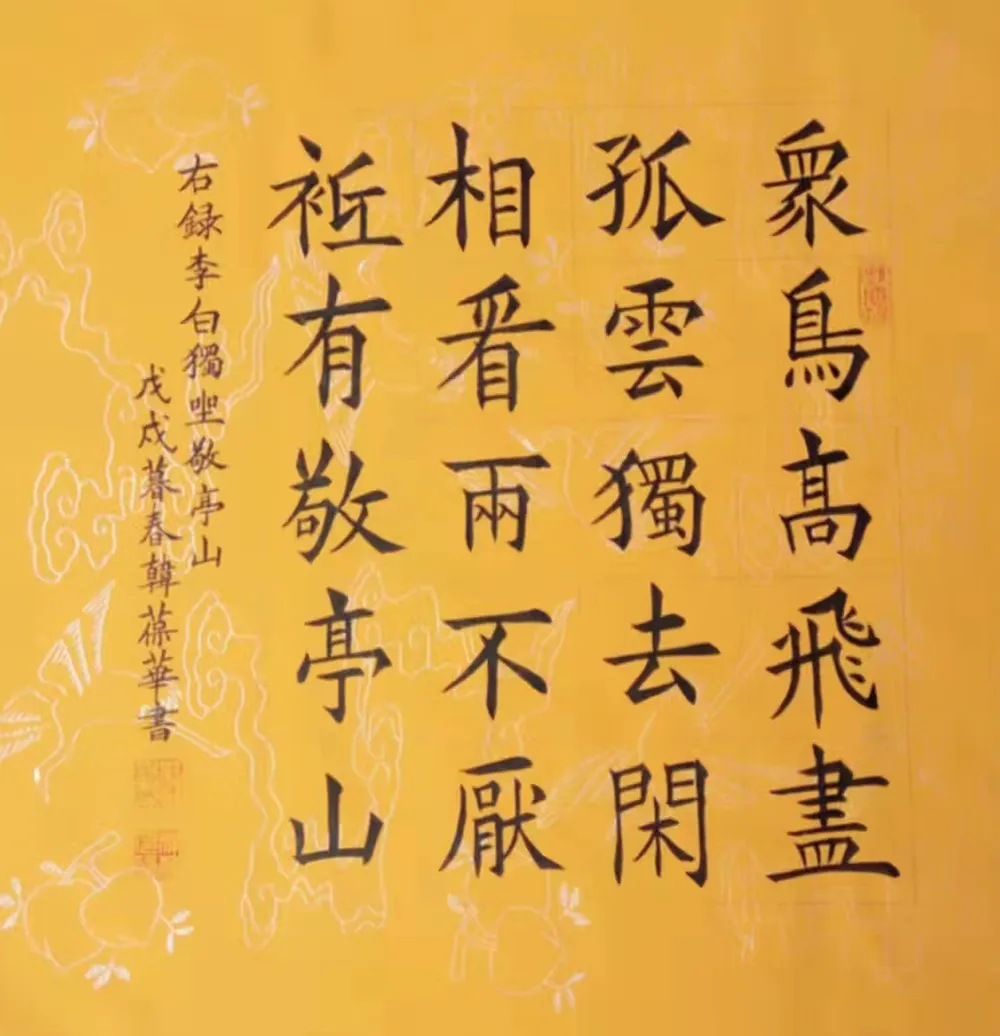 衆鳥髙飛盡
孤雲獨去閑
相看兩不厭
袛有敬亭山
右録李白獨坐敬亭山
戊戌暮春韓葆華書